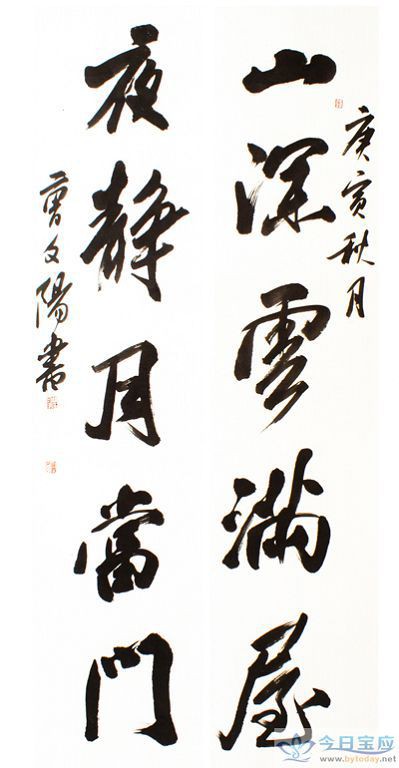 庚寅秋月
山深雲滿屋
夜靜月當門
曹文陽書
今日宝应
www.bytoday.net